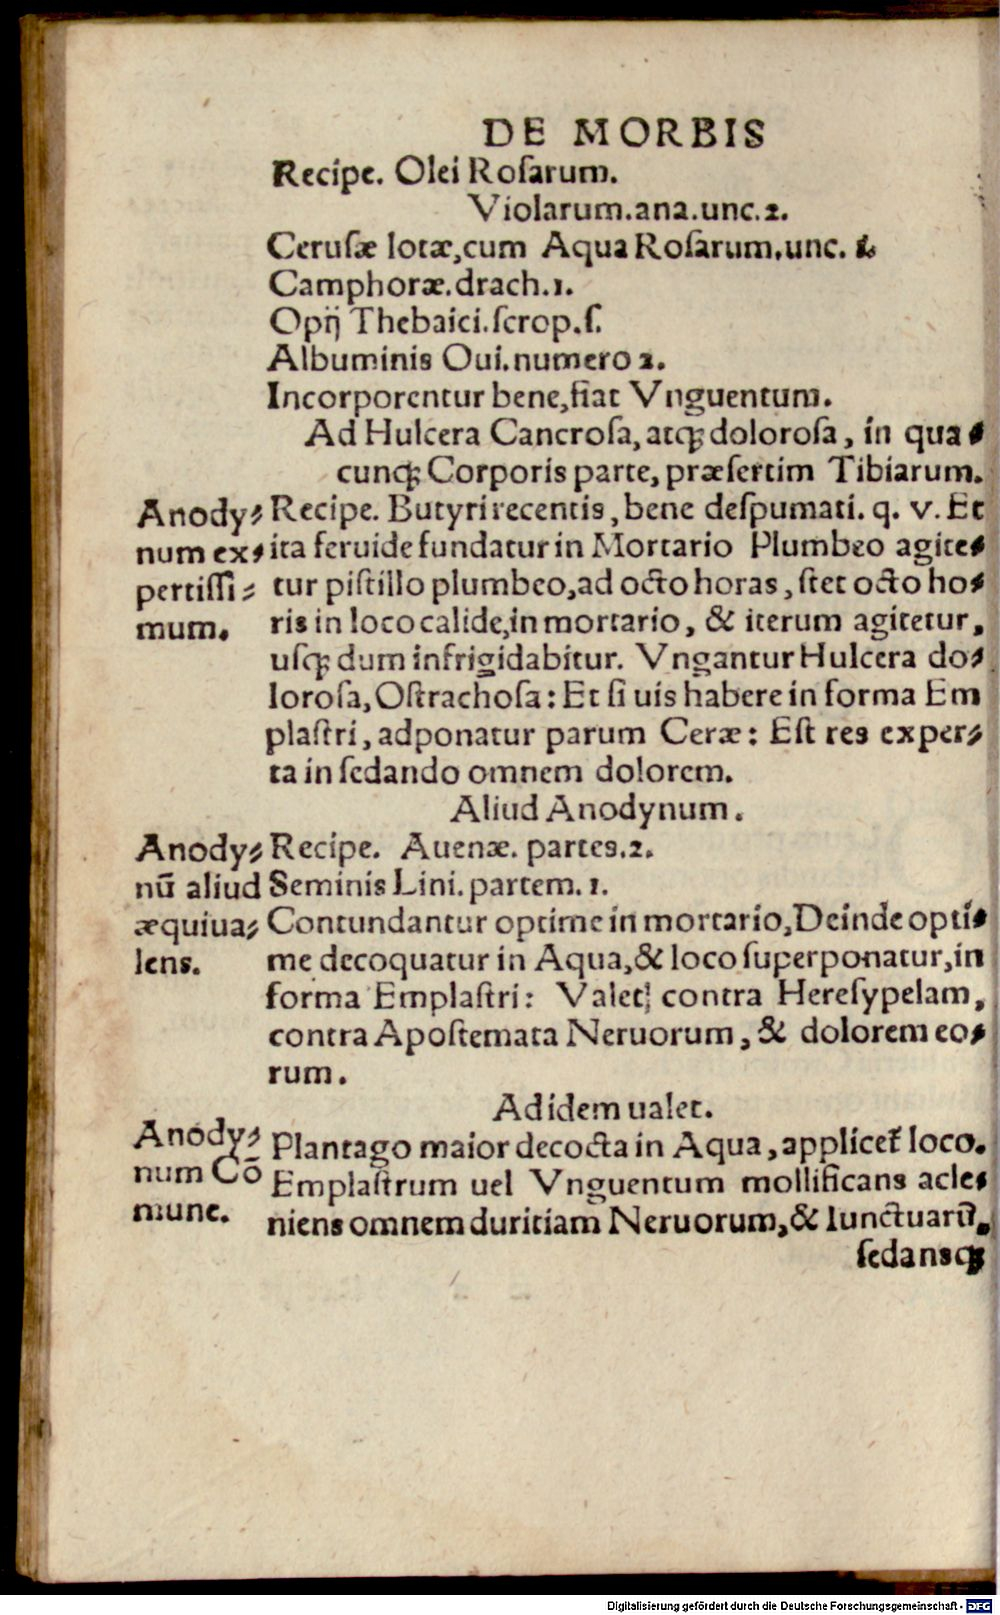 DE MORBIS
Recipe. Olei Roſarum.
Violarum.ana.unc.2.
Ceruſæ lotæ,cum Aqua Roſarum.unc.
Camphoræ.drach.1.
Opij Thebaici.ſcrop.ſ.
Albuminis Oui.numero 2.
Incorporentur bene,fiat Vnguentum.
Ad Hulcera Cancroſa, atqꝫ doloroſa, in qua⸗
cunqꝫ Corporis parte, præſertim Tibiarum.
Anody⸗
num ex⸗
pertiſſi⸗
mum.
Recipe. Butyri recentis, bene deſpumati. q. v. Et
ita feruide fundatur in Mortario Plumbeo agite⸗
tur piſtillo plumbeo,ad octo horas, ſtet octo ho⸗
ris in loco calide,in mortario, & iterum agitetur,
uſqꝫ dum infrigidabitur. Vngantur Hulcera do⸗
loroſa, Oſtrachoſa: Et ſi uis habere in forma Em
plaſtri, adponatur parum Ceræ: Eſt res exper⸗
ta in ſedando omnem dolorem.
Aliud Anodynum.
Anody⸗
nū aliud
æquiua⸗
lens.
Recipe. Auenæ. partes.2.
Seminis Lini. partem. 1.
Contundantur optime in mortario, Deinde opti⸗
me decoquatur in Aqua,& loco ſuperponatur,in
forma Emplaſtri: Valet contra Hereſypelam,
contra Apoſtemata Neruorum, & dolorem eo⸗
rum.
Ad idem ualet.
Anody⸗
num Cō
mune.
Plantago maior decocta in Aqua, applicet᷑ loco.
Emplaſtrum uel Vnguentum mollificans acle⸗
niens omnem duritiam Neruorum, & Iunctuarū.
ſedansqꝫ
Digitalisierung gefördert durch die Deutsche Forschungsgemeinschaft - DFG